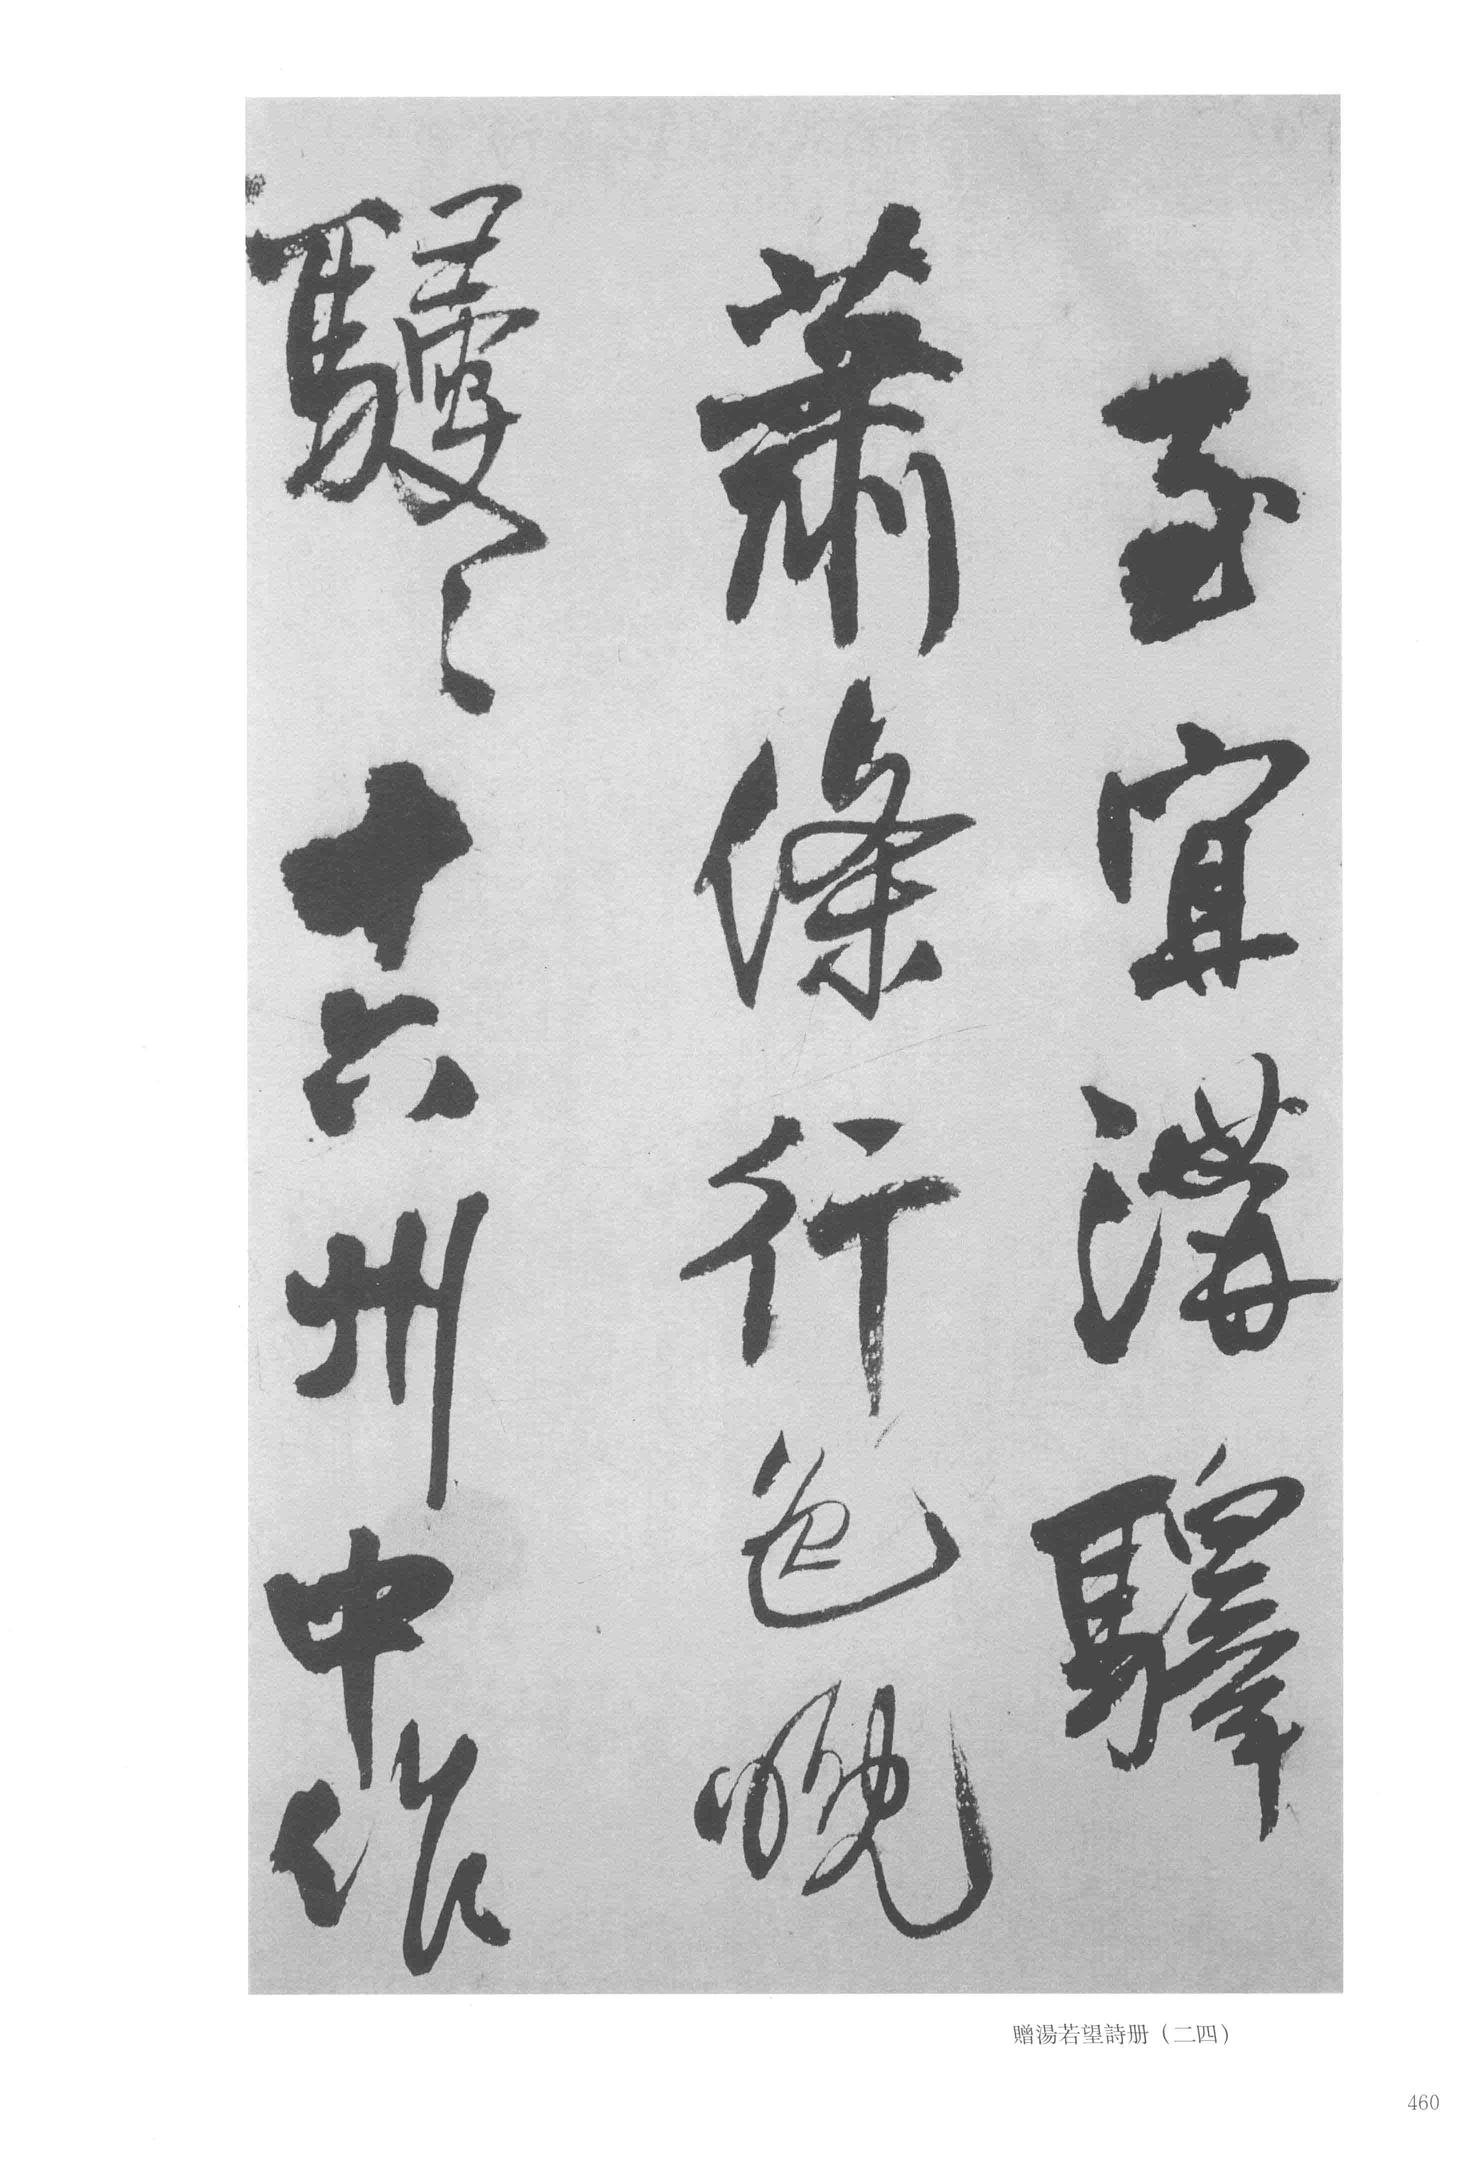 至宜溝驛
蕭條行色晚
十六州中作
贈湯若望詩册（二四）
460